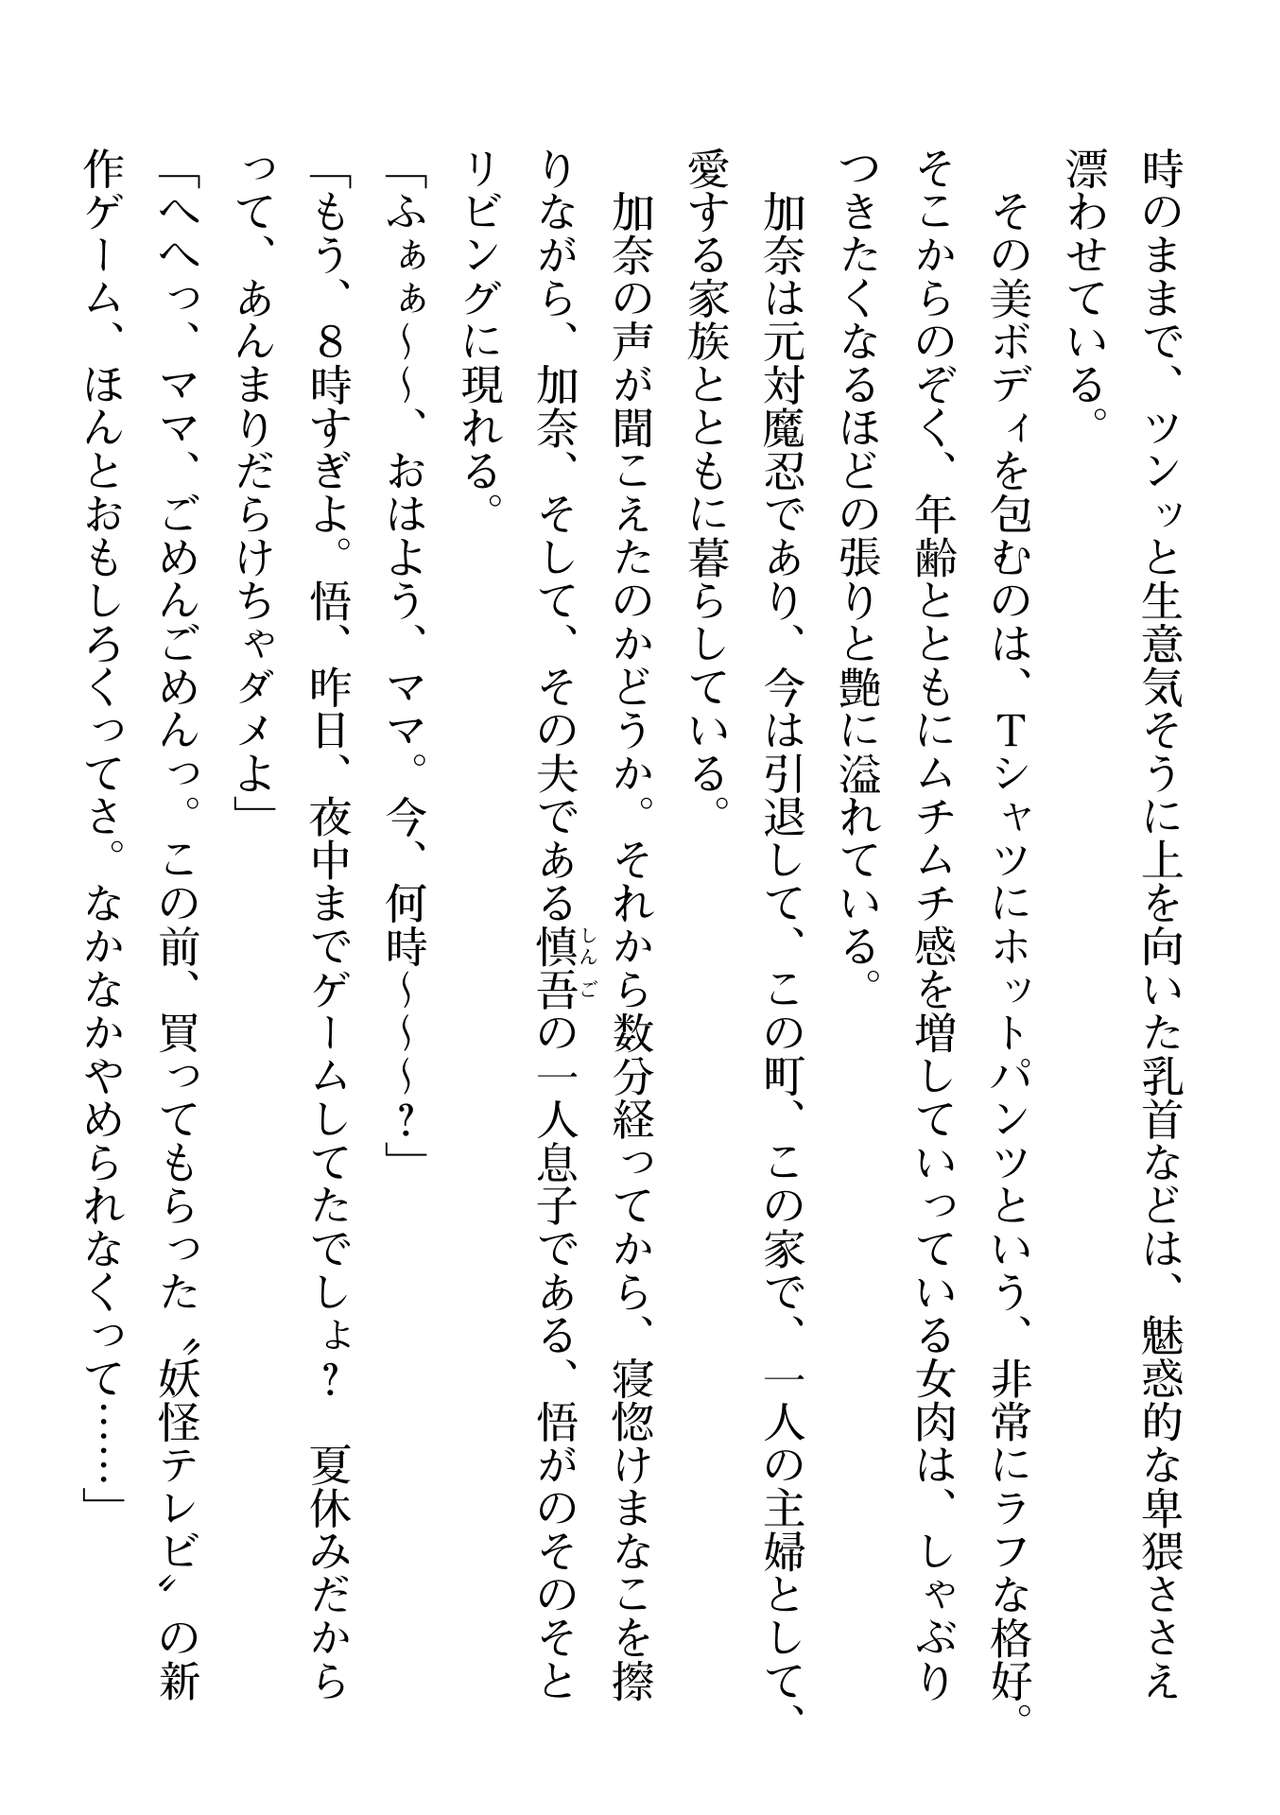 時のままで、ツンッと生意気そうに上を向いた乳首などは、魅惑的な卑猥ささえ
漂わせている。
　その美ボディを包むのは、Ｔシャツにホットパンツという、非常にラフな格好。
そこからのぞく、年齢とともにムチムチ感を増していっている女肉は、しゃぶり
つきたくなるほどの張りと艶に溢れている。
　加奈は元対魔忍であり、今は引退して、この町、この家で、一人の主婦として、
愛する家族とともに暮らしている。
　加奈の声が聞こえたのかどうか。それから数分経ってから、寝惚けまなこを擦
りながら、加奈、そして、その夫である慎吾（しんご）の一人息子である、悟がのそのそと
リビングに現れる。
「ふぁぁ～～、おはよう、ママ。今、何時～～～？」
「もう、８時すぎよ。悟、昨日、夜中までゲームしてたでしょ？　夏休みだから
って、あんまりだらけちゃダメよ」
「へへっ、ママ、ごめんごめんっ。この前、買ってもらった〝妖怪テレビ〟の新
作ゲーム、ほんとおもしろくってさ。なかなかやめられなくって……」